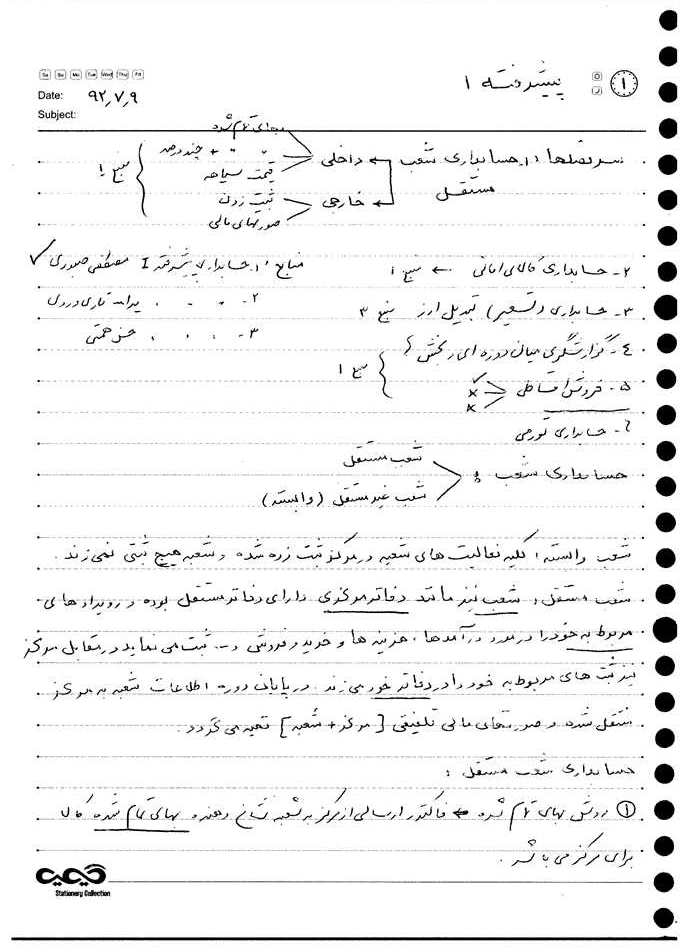 پیشرفته ۱
۱
Sa Su Mo Tue Wed Thu Fri
Date: ۹۲٫۷٫۹
Subject:
سرفصلها: ۱. حسابداری شعب مستقل
داخلی
بهای تمام شده
" " + چند درصد
قیمت سیاهه
خارجی
ثبت زدن
صورتهای مالی
منبع ۱
۲- حسابداری کالای امانی ← منبع ۱
۳- حسابداری (تسعیر) تبدیل ارز منبع ۳
۴- گزارشگری میان دوره ای و بخش
۵- فروش اقساطی
منبع ۱
۶- حسابداری تورمی
منابع: ۱. حسابداری پیشرفته I مصطفی صبوری ✓
۲- " " "
۳- " " " حسن همتی
حسابداری شعب:
شعب مستقل
شعب غیر مستقل (وابسته)
شعب وابسته: کلیه فعالیت های شعبه در مرکز ثبت زده شده و شعبه هیچ ثبتی نمی زند.
شعب مستقل: شعب نیز مانند دفاتر مرکزی دارای دفاتر مستقل بوده و رویدادهای
مربوط به خود را در مورد درآمدها، هزینه ها و خرید و فروش و... ثبت می نماید در مقابل مرکز
نیز ثبت های مربوط به خود را در دفاتر خود می زند. در پایان دوره اطلاعات شعبه به مرکز
منتقل شده و صورتهای مالی تلفیقی [مرکز + شعبه] تهیه می گردد.
حسابداری شعب مستقل:
① روش بهای تمام شده ← فاکتور ارسالی از مرکز به شعبه نشان دهنده بهای تمام شده کالا
برای مرکز می باشد.
Stationery Collection